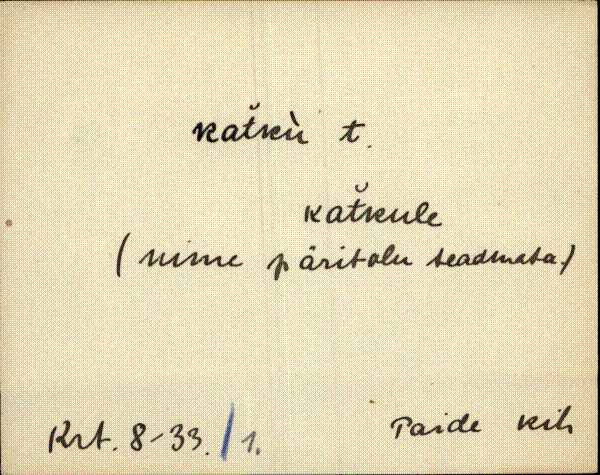 kat̆kù t.
kat̆kule
(nime päritolu teadmata.)
Krt. 8-33./1.
Paide kih